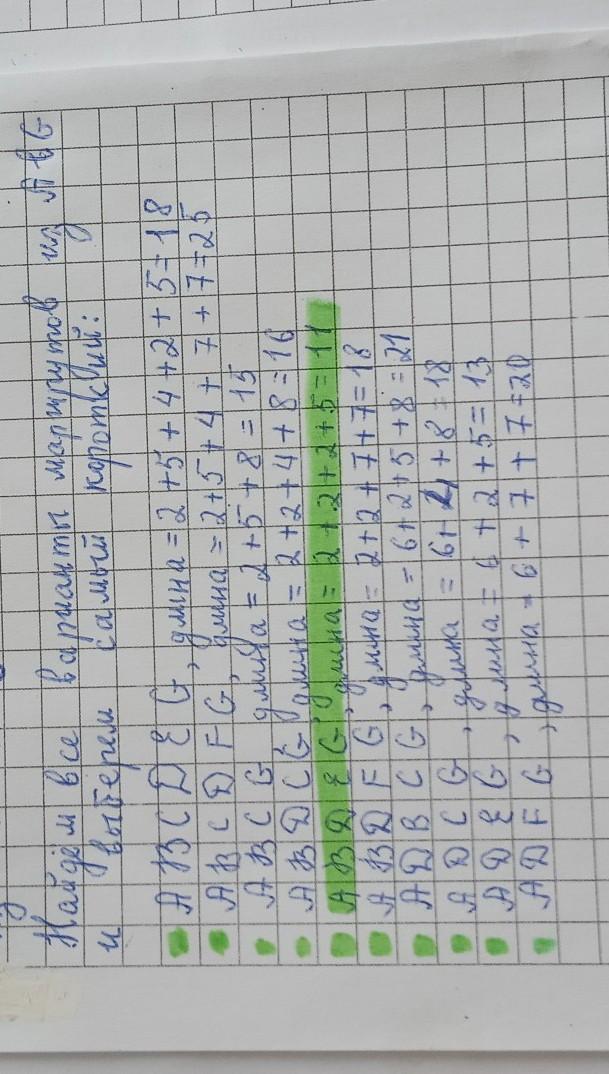 Найдём все варианты маршрутов из А в G
и выберем самый короткий:
A B C D E G, длина = 2 + 5 + 4 + 2 + 5 = 18
A B C D F G, длина = 2 + 5 + 4 + 7 + 7 = 25
A B C G, длина = 2 + 5 + 8 = 15
A B D C G, длина = 2 + 2 + 4 + 8 = 16
A B D E G, длина = 2 + 2 + 2 + 5 = 11
A B D F G, длина = 2 + 2 + 7 + 7 = 18
A D B C G, длина = 6 + 2 + 5 + 8 = 21
A D C G, длина = 6 + 4 + 8 = 18
A D E G, длина = 6 + 2 + 5 = 13
A D F G, длина = 6 + 7 + 7 = 20